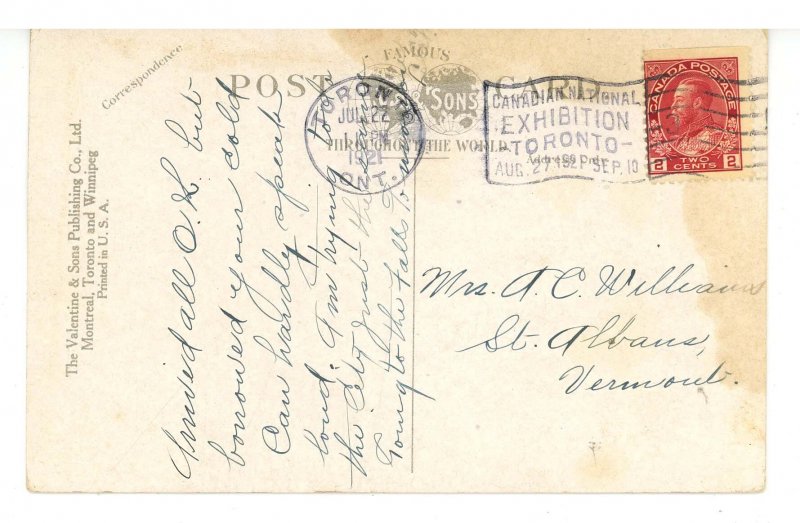 The Valentine & Sons Publishing Co., Ltd.
Montreal, Toronto and Winnipeg
Printed in U. S. A.
Correspondence
POST CARD
FAMOUS
SONS
THROUGHOUT THE WORLD
Address Only
TORONTO
JUL 22
PM
1921
ONT.
CANADIAN NATIONAL
EXHIBITION
TORONTO
AUG. 27 1921 SEP. 10
CANADA POSTAGE
2 TWO CENTS 2
Arrived all O.K. but
borrowed your cold
Can hardly speak
loud. I'm trying to
the city just the
Going to the falls
Mrs. A. C. Williams
St. Albans,
Vermont.